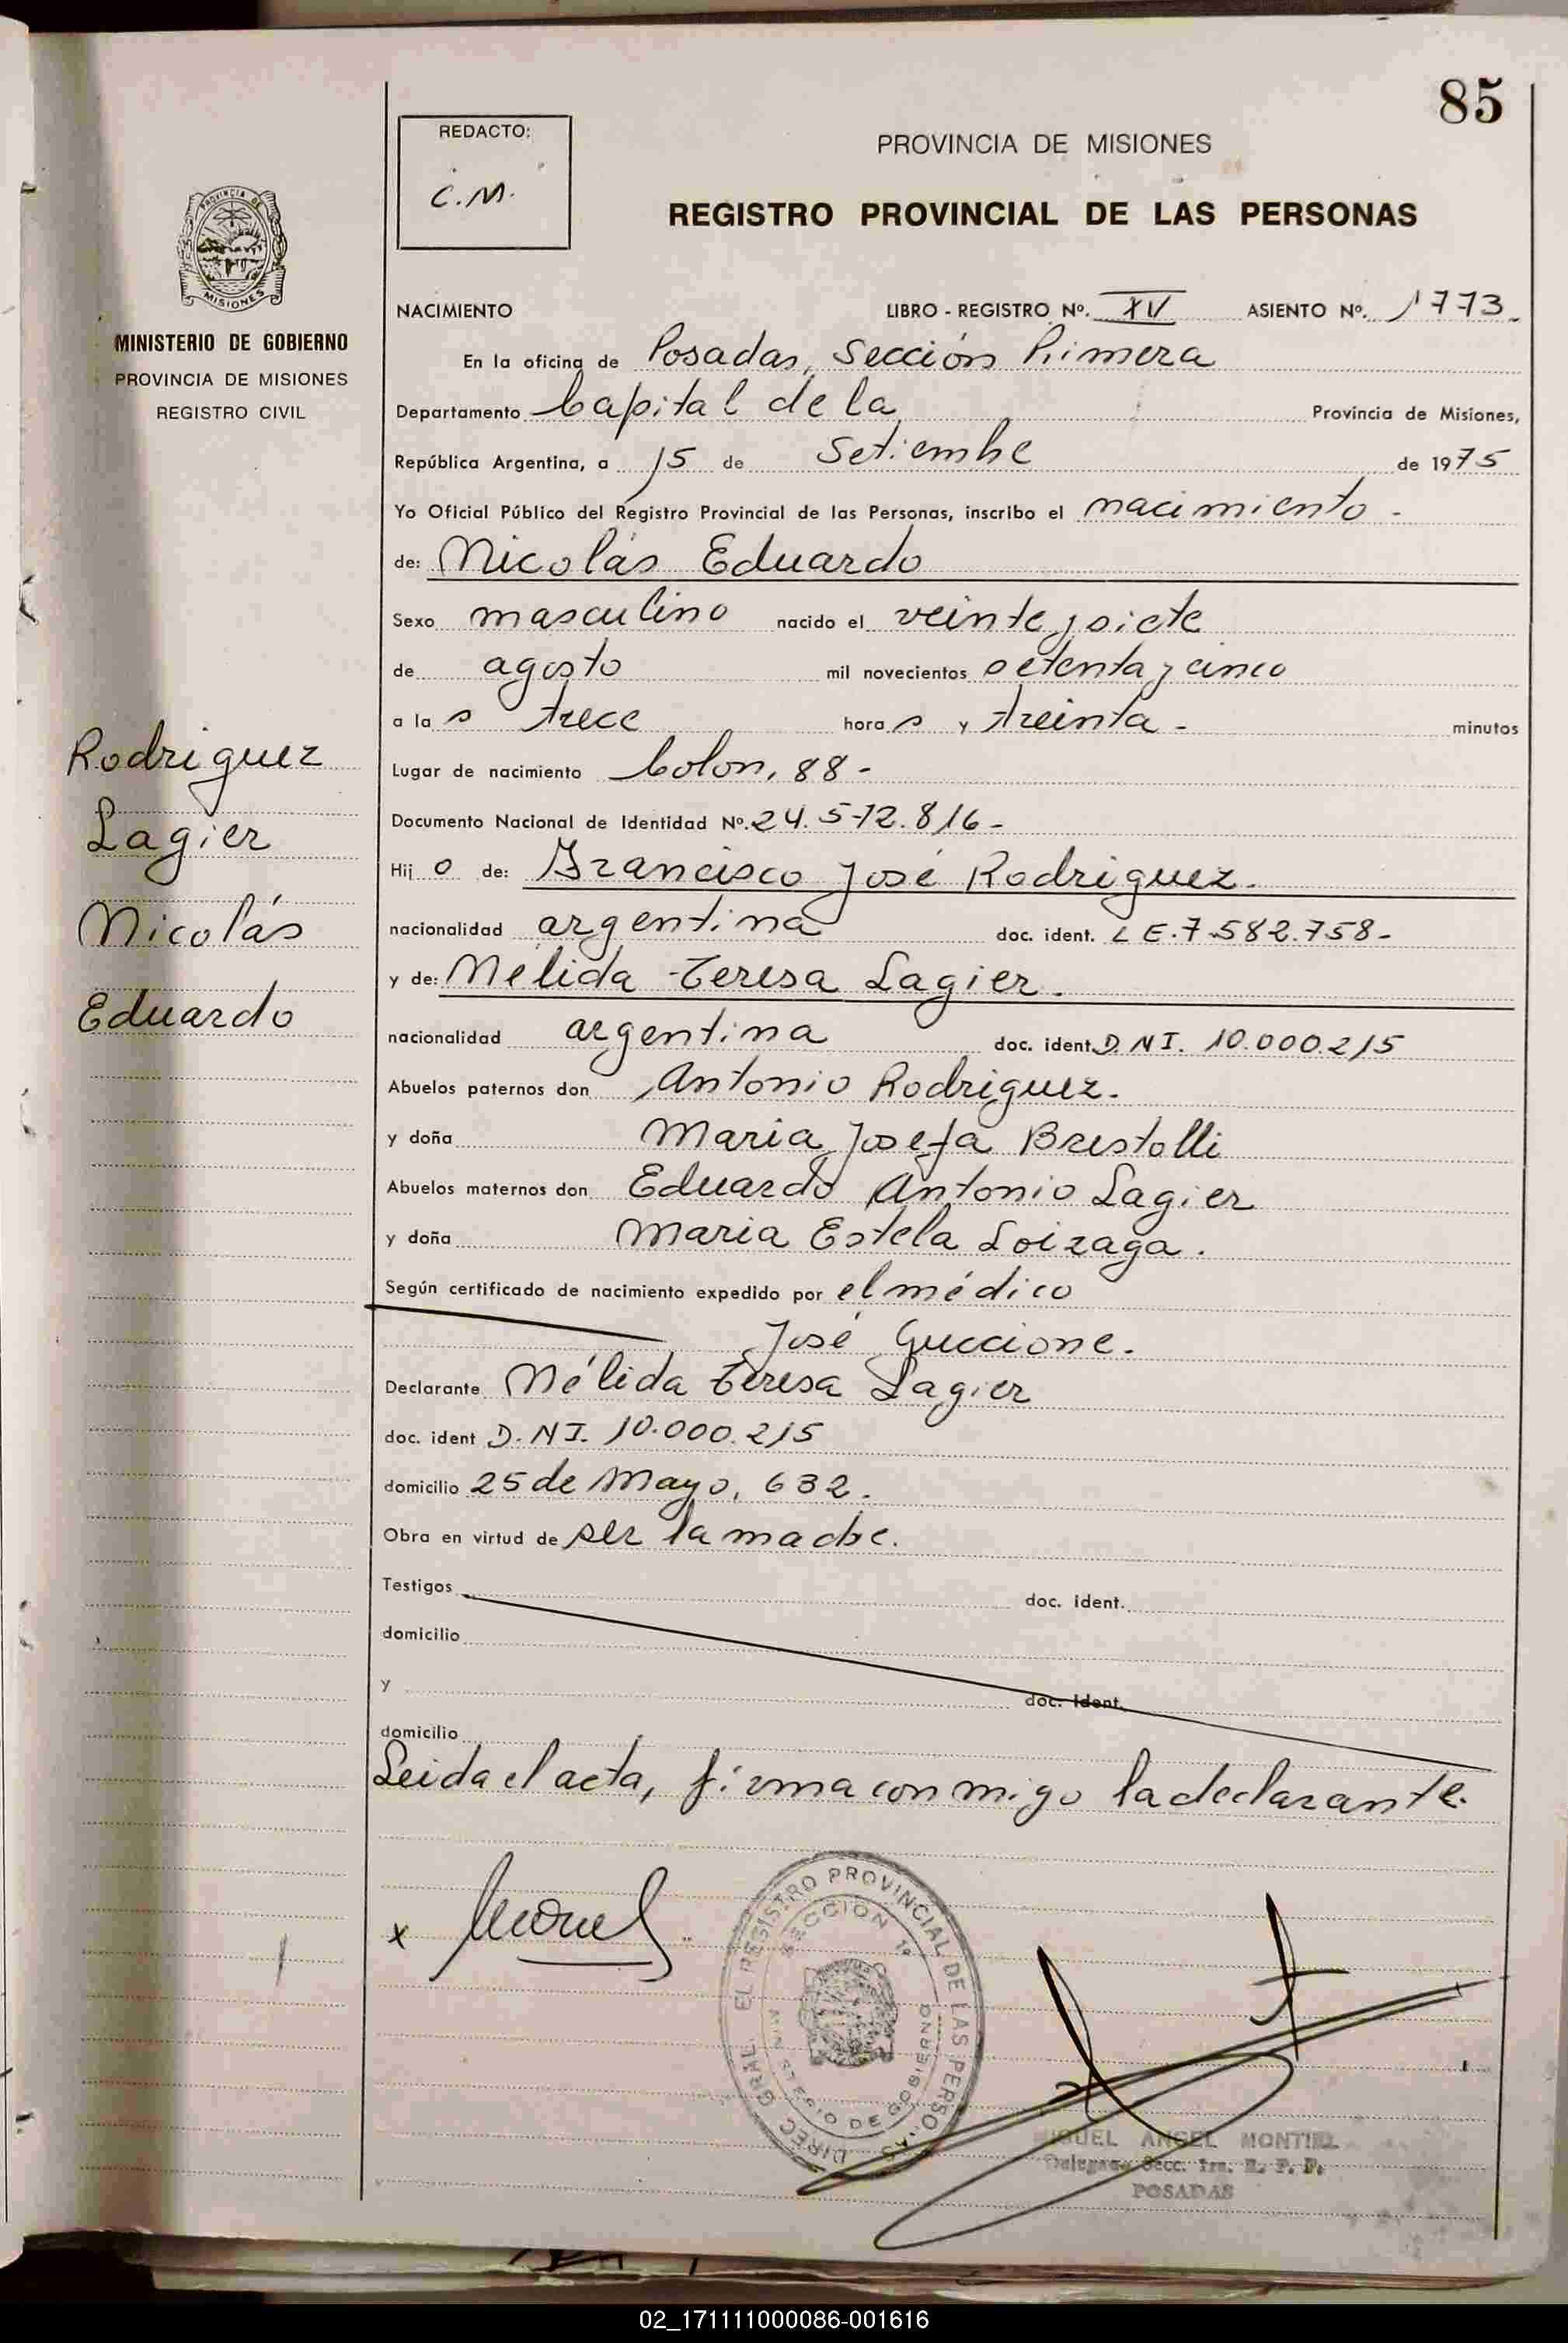 85
REDACTO:
C.M.
PROVINCIA DE MISIONES
REGISTRO PROVINCIAL DE LAS PERSONAS
PROVINCIA DE
MISIONES
MINISTERIO DE GOBIERNO
PROVINCIA DE MISIONES
REGISTRO CIVIL
Rodriguez
Lagier
Nicolás
Eduardo
NACIMIENTO LIBRO - REGISTRO Nº. XV ASIENTO Nº. 1773
En la oficina de Posadas, Sección Primera
Departamento Capital de la Provincia de Misiones,
República Argentina, a 15 de Setiembre de 1975
Yo Oficial Público del Registro Provincial de las Personas, inscribo el nacimiento -
de: Nicolás Eduardo
Sexo masculino nacido el veinte y siete
de agosto mil novecientos setenta y cinco
a la s trece hora s y treinta - minutos
Lugar de nacimiento Colon, 88 -
Documento Nacional de Identidad Nº. 24.572.816 -
Hij o de: Francisco José Rodriguez.
nacionalidad argentina doc. ident. L E. 7.582.758 -
y de: Nélida Teresa Lagier.
nacionalidad argentina doc. ident. D.N I. 10.000.215
Abuelos paternos don Antonio Rodriguez.
y doña Maria Josefa Brestolli
Abuelos maternos don Eduardo Antonio Lagier
y doña Maria Estela Loizaga.
Según certificado de nacimiento expedido por el médico
José Guccione.
Declarante Nélida Teresa Lagier
doc. ident D. N I. 10.000.215
domicilio 25 de Mayo, 632.
Obra en virtud de ser la madre.
Testigos doc. ident.
domicilio
y doc. ident.
domicilio
Leida el acta, firma conmigo la declarante.
x
DIREC GRAL. EL REGISTRO PROVINCIAL DE LAS PERSONAS
SECCION 1ª
MINISTERIO DE GOBIERNO
MIGUEL ANGEL MONTIEL
Delegado Secc. 1ra. R. P. P.
POSADAS
02_171111000086-001616